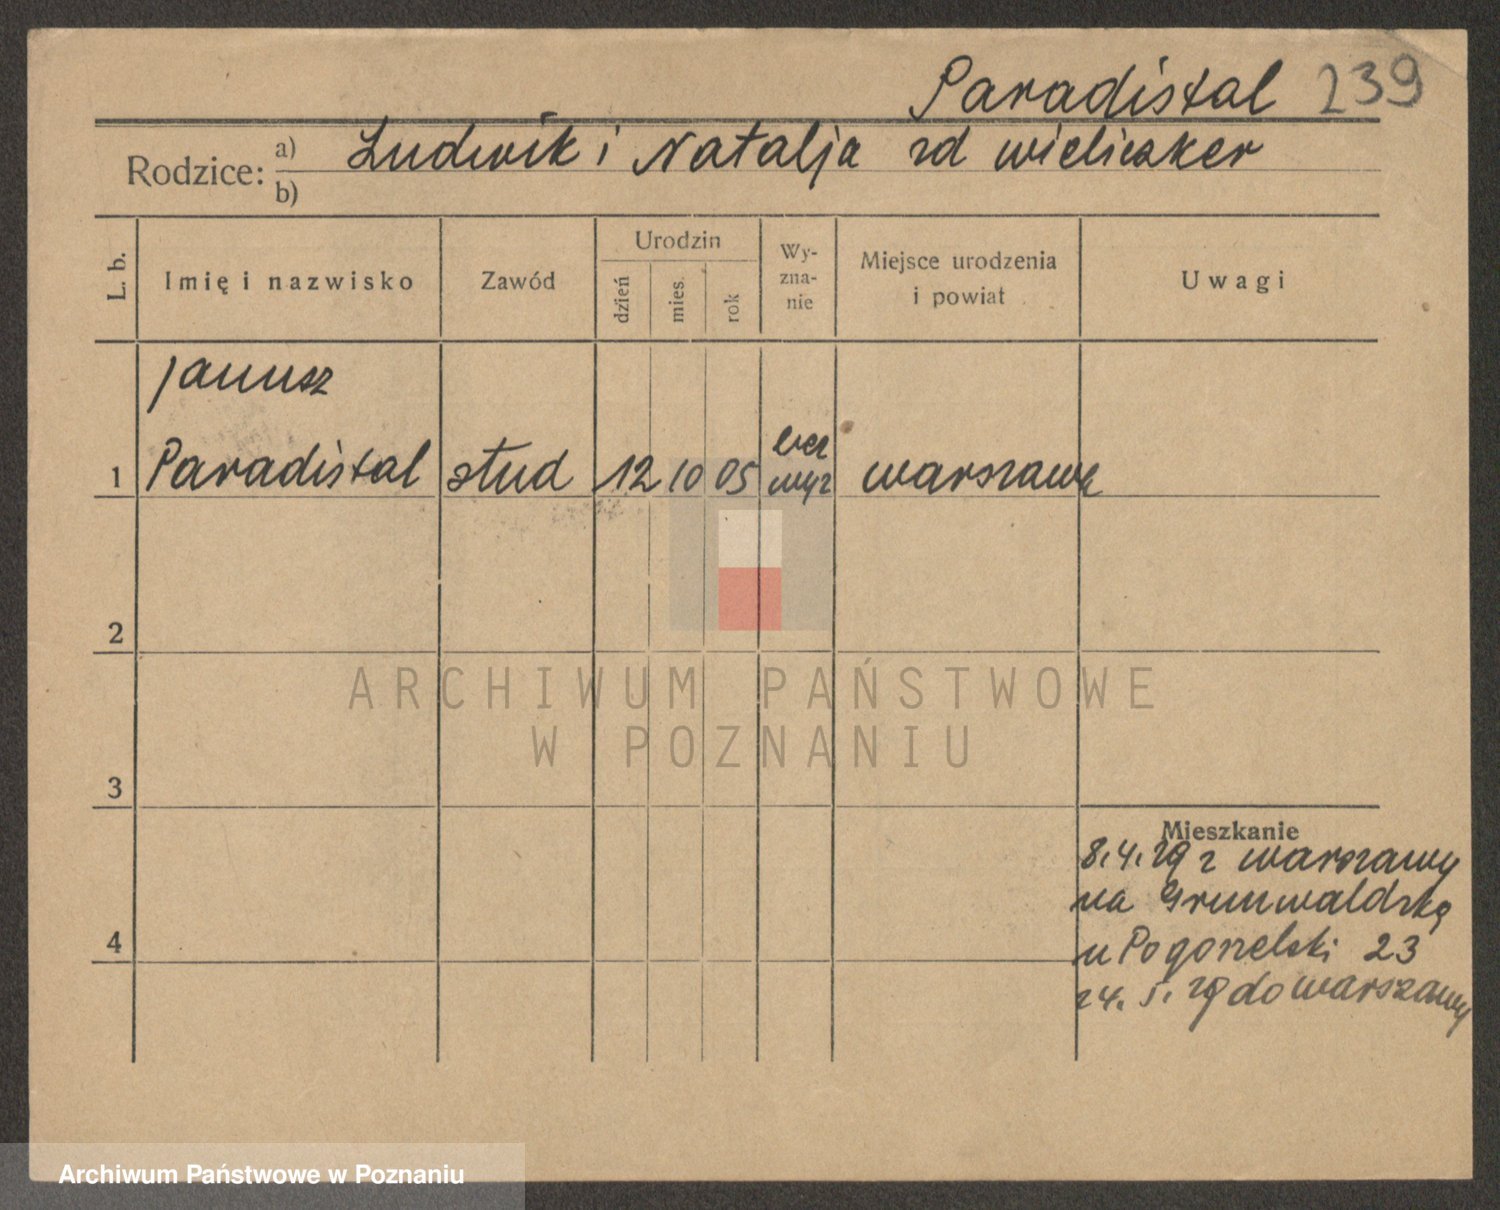 Paradistal 239
Rodzice: a) Ludwik i Natalja zd wieliczker
b)
L. b.
Imię i nazwisko
Zawód
Urodzin
dzień
mies.
rok
Wy-
zna-
nie
Miejsce urodzenia
i powiat
Uwagi
Janusz
1 Paradistal stud 12 10 05 bez wyz warszawa
2
3
4
Mieszkanie
8.4.29 z warszawy
na Grunwaldzką
u Pogorzelski 23
24. 5. 29 do warszawy
ARCHIWUM PAŃSTWOWE
W POZNANIU
Archiwum Państwowe w Poznaniu